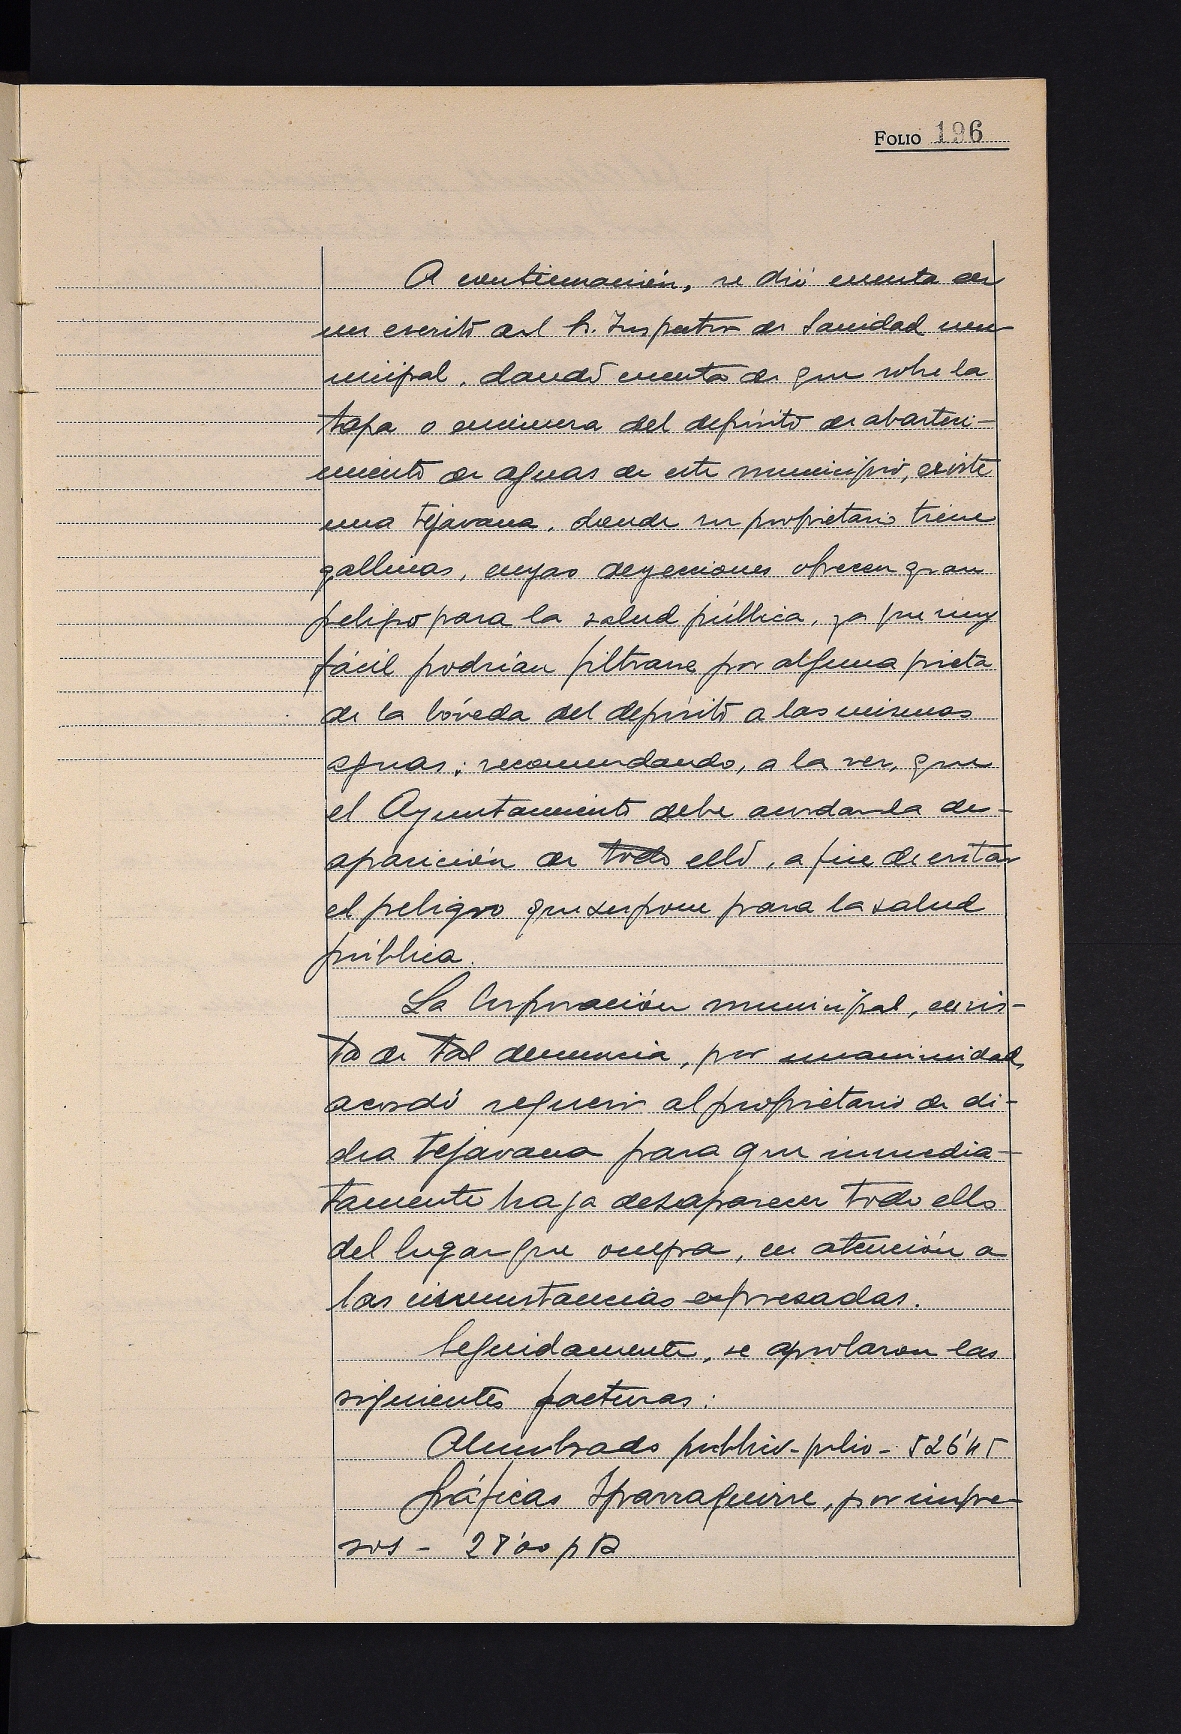 FOLIO 196
A continuación, se dió cuenta de
un escrito del Sr. Inspector de Sanidad mu-
nicipal, dando cuenta de que sobre la
tapa o encimera del depósito de abasteci-
miento de aguas de este municipio, existe
una tejavana, donde su propietario tiene
gallinas, cuyas deyecciones ofrecen gran
peligro para la salud pública, ya que muy
fácil podrían filtrarse por alguna grieta
de la bóveda del depósito a las mismas
aguas; recomendando, a la vez, que
el Ayuntamiento debe acordar la des-
aparición de todo ello, a fin de evitar
el peligro que supone para la salud
pública.
La Corporación municipal, en vis-
ta de tal denuncia, por unanimidad,
acordó requerir al propietario de di-
cha tejavana para que inmedia-
tamente haga desaparecer todo ello
del lugar que ocupa, en atención a
las circunstancias expresadas.
Seguidamente, se aprobaron las
siguientes facturas:
Alumbrado público - julio - 526'45
Gráficas Yparraguirre, por impre-
sos - 28'00 pts